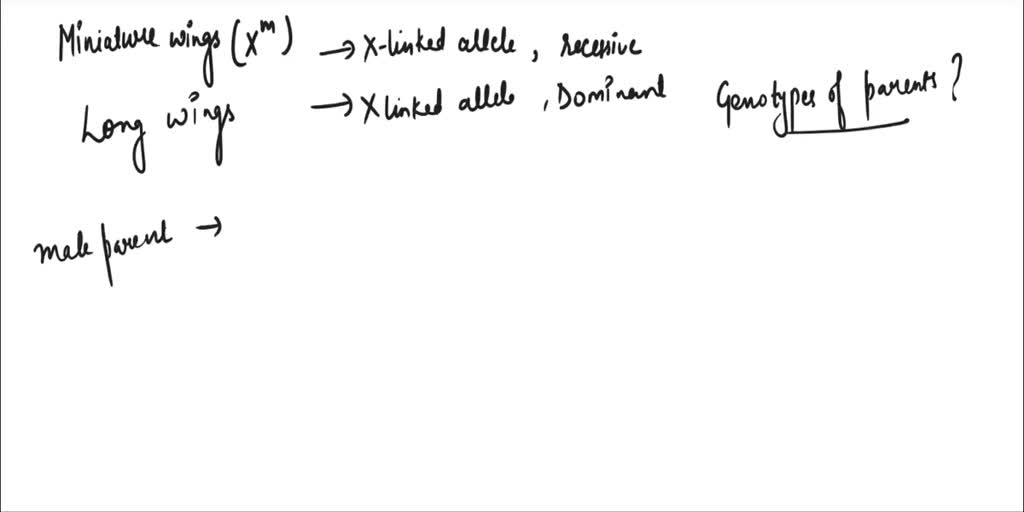 Miniature wings (Xᵐ) → X-linked allele, recessive
Long wings → X linked allele, Dominant
Genotypes of parents?
male parent →